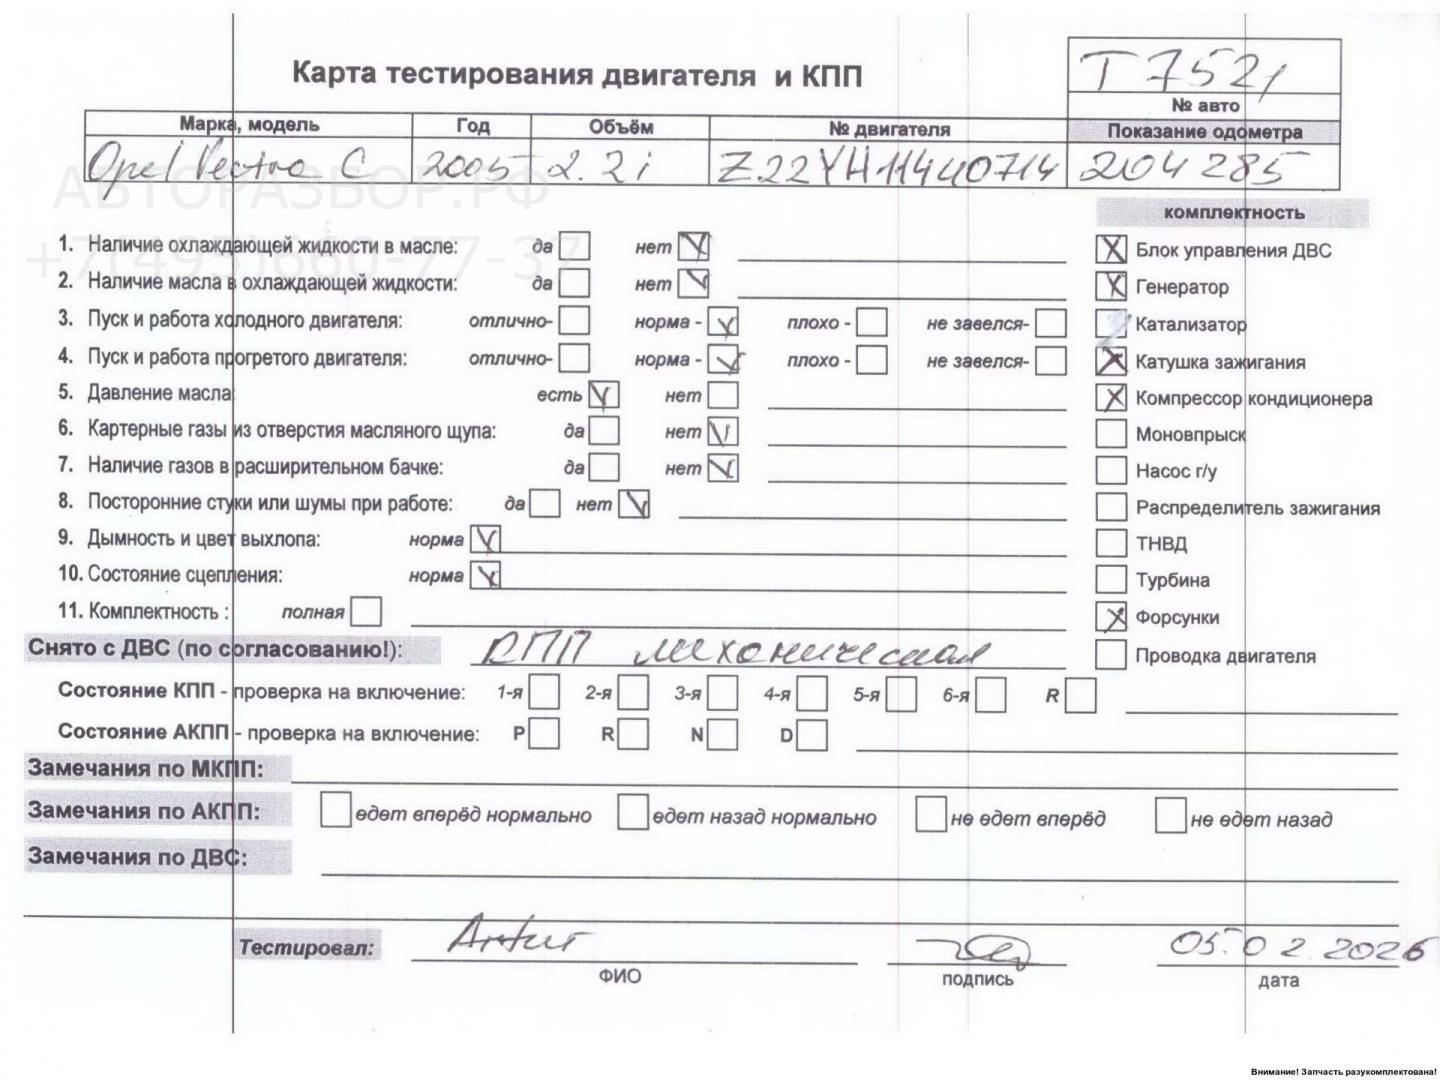 Карта тестирования двигателя и КПП
Т 7521
№ авто
Марка, модель Год Объём № двигателя Показание одометра
Opel Vectra C 2005 2.2i Z22YH11440714 204285
АВТОРАЗБОР.РФ
+7(495)660-77-37
комплектность
1. Наличие охлаждающей жидкости в масле: да нет Блок управления ДВС
2. Наличие масла в охлаждающей жидкости: да нет Генератор
3. Пуск и работа холодного двигателя: отлично- норма - плохо - не завелся- Катализатор
4. Пуск и работа прогретого двигателя: отлично- норма - плохо - не завелся- Катушка зажигания
5. Давление масла: есть нет Компрессор кондиционера
6. Картерные газы из отверстия масляного щупа: да нет Моновпрыск
7. Наличие газов в расширительном бачке: да нет Насос г/у
8. Посторонние стуки или шумы при работе: да нет Распределитель зажигания
9. Дымность и цвет выхлопа: норма ТНВД
10. Состояние сцепления: норма Турбина
11. Комплектность : полная Форсунки
Снято с ДВС (по согласованию!): КПП механическая Проводка двигателя
Состояние КПП - проверка на включение: 1-я 2-я 3-я 4-я 5-я 6-я R
Состояние АКПП - проверка на включение: P R N D
Замечания по МКПП:
Замечания по АКПП: едет вперёд нормально едет назад нормально не едет вперёд не едет назад
Замечания по ДВС:
Тестировал: 05.02.2026
ФИО подпись дата
Внимание! Запчасть разукомплектована!